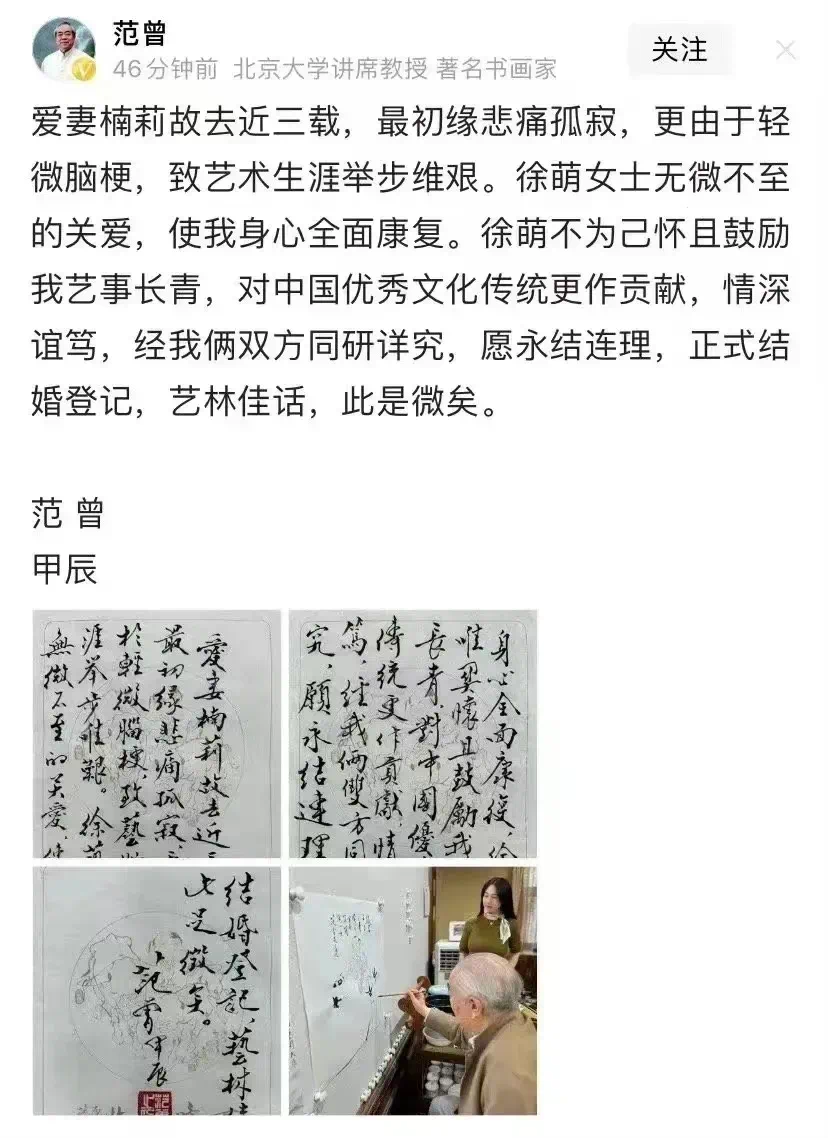 范曾
46分钟前 北京大学讲席教授 著名书画家
关注
爱妻楠莉故去近三载，最初缘悲痛孤寂，更由于轻
微脑梗，致艺术生涯举步维艰。徐萌女士无微不至
的关爱，使我身心全面康复。徐萌不为己怀且鼓励
我艺事长青，对中国优秀文化传统更作贡献，情深
谊笃，经我俩双方同研详究，愿永结连理，正式结
婚登记，艺林佳话，此是微矣。
范 曾
甲辰
愛妻楠莉故去近
最初缘悲痛孤寂，
於輕微腦梗，致藝
涯举步唯艱。徐萌
無微不至的关爱，使
身心全面康復，徐
唯異懷且鼓勵我
長青，對中國優
傳統更作貢獻，情
篤，經我俩雙方同
究，願永结連理
结婚登记，藝林
此足徵矣。
范曾甲辰